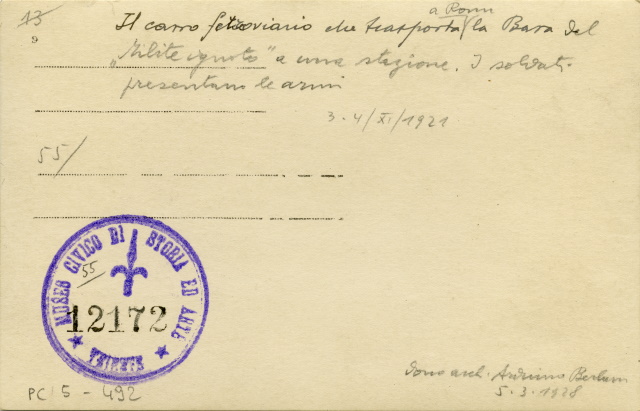 13
9
a Roma
Il carro ferroviario che trasporta la Bara del
"Milite ignoto" a una stazione. I soldati
presentano le armi
3-4/XI/1921
55/
MUSEO CIVICO DI STORIA ED ARTE
TRIESTE
55
12172
PC 5 - 492
dono arch.
5.3.1928